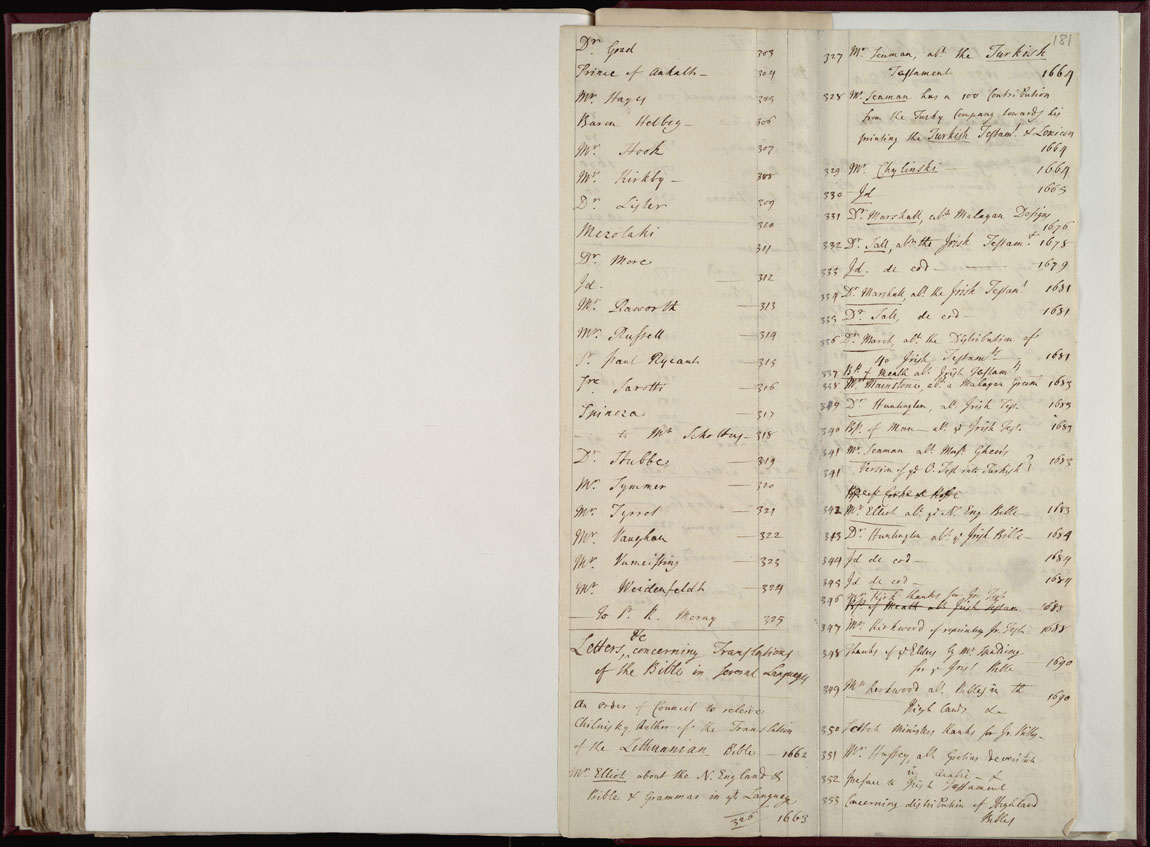 181
Dr. Goad 303
Prince of Anhalt — 304
Mr. Hayes 305
Baron Helbeg — 306
Mr. Hook 307
Mr. Kirkby — 308
Dr. Lister 309
Merolahi 310
Dr. More 311
Jd. — 312
Mr. Raworth — 313
Mr. Russell — 314
Sr. Paul Rycaut — 315
Sre Sarotti — 316
Spinoza — 317
— to Mr. — 318
Dr. Stubbe — 319
Mr. Symmer — 320
Mr. Tyrrel — 321
Mr. Vaughan — 322
Mr. — 323
Mr. Weidenfeldt — 324
— to Sr. R. Moray 325
Letters, &c concerning Translations
of the Bible in several Languages
An order of Council to relieve
Chilinsky Author of the Translation
of the Lithuanian Bible — 1662
Mr. Elliot about the N. England
Bible & Grammar in yt Language
326 1663
327 Mr. Seaman, abt. the Turkish
Testament 1664
328 Mr. Seaman has a 100 Contribution
from the Turky Company towards his
printing the Turkish Testamt. & Lexicon
1664
329 Mr. Chylinski 1664
330 — Jd 1665
331 Dr. Marshall, abt. Malayan Design
1676
332 Dr. Sall, abt. the Irish Testamt. 1678
333 Jd. de eod — 1679
334 Dr. Marshall, abt. the Irish Testamt 1681
335 Dr. Sall, de eod — 1681
336 Dr. March, abt. the Distribution of
40 Irish Testamts. 1681
337 Bp. of Meath abt. Irish Testamts
338 Mr. Mainstone, abt. a Malayan 1683
339 Dr. Huntington, abt. Irish Test. 1683
340 Bp. of Man — abt. ye Irish Test. 1683
341 Mr. Seaman abt. Must. Gheib
341 Version of ye O. Test into Turkish 1683
342 Mr. Elliot abt. ye N. Eng Bible — 1683
343 Dr. Huntington abt. ye Irish Bible — 1684
344 Jd de eod — 1684
345 Jd de eod — 1684
346 Mr. Kirk thanks for Ir.
Bp. of Meath abt. Irish Testam 1688
347 Mr. Kirkwood of reprinting Ir. Test. 1688
348 Thanks of ye Elders by Mr. Spalding
for ye Irish Bible 1690
349 Mr. Kerkwood abt. Bibles in th
High lands &c 1690
350 Scotch Ministers thanks for Ir. Bibles —
351 Mr. Hussey, abt. Grotius de veritate
in Arabic — &
352 Preface to Irish Testament
353 Concerning distribution of Highland
Bibles